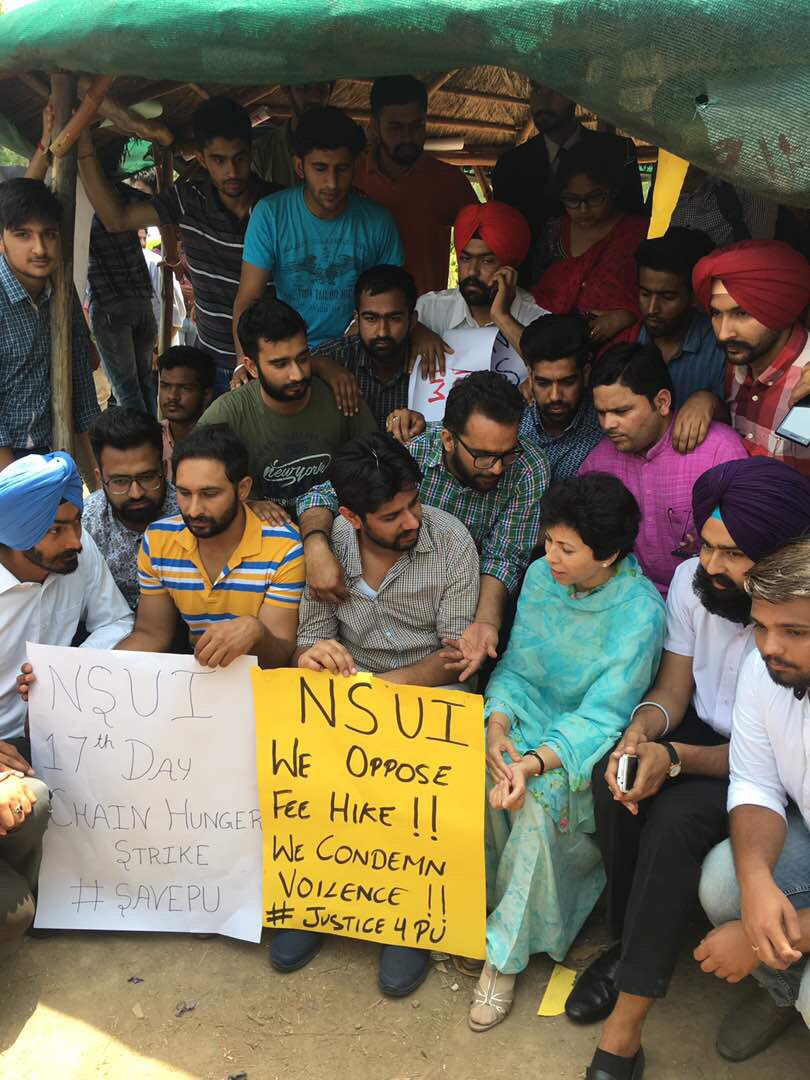 NSUI
17th DAY
CHAIN HUNGER
STRIKE
# SAVEPU
NSUI
WE OPPOSE
FEE HIKE !!
WE CONDEMN
VOILENCE !!
# JUSTICE 4 PU
NEW YORK